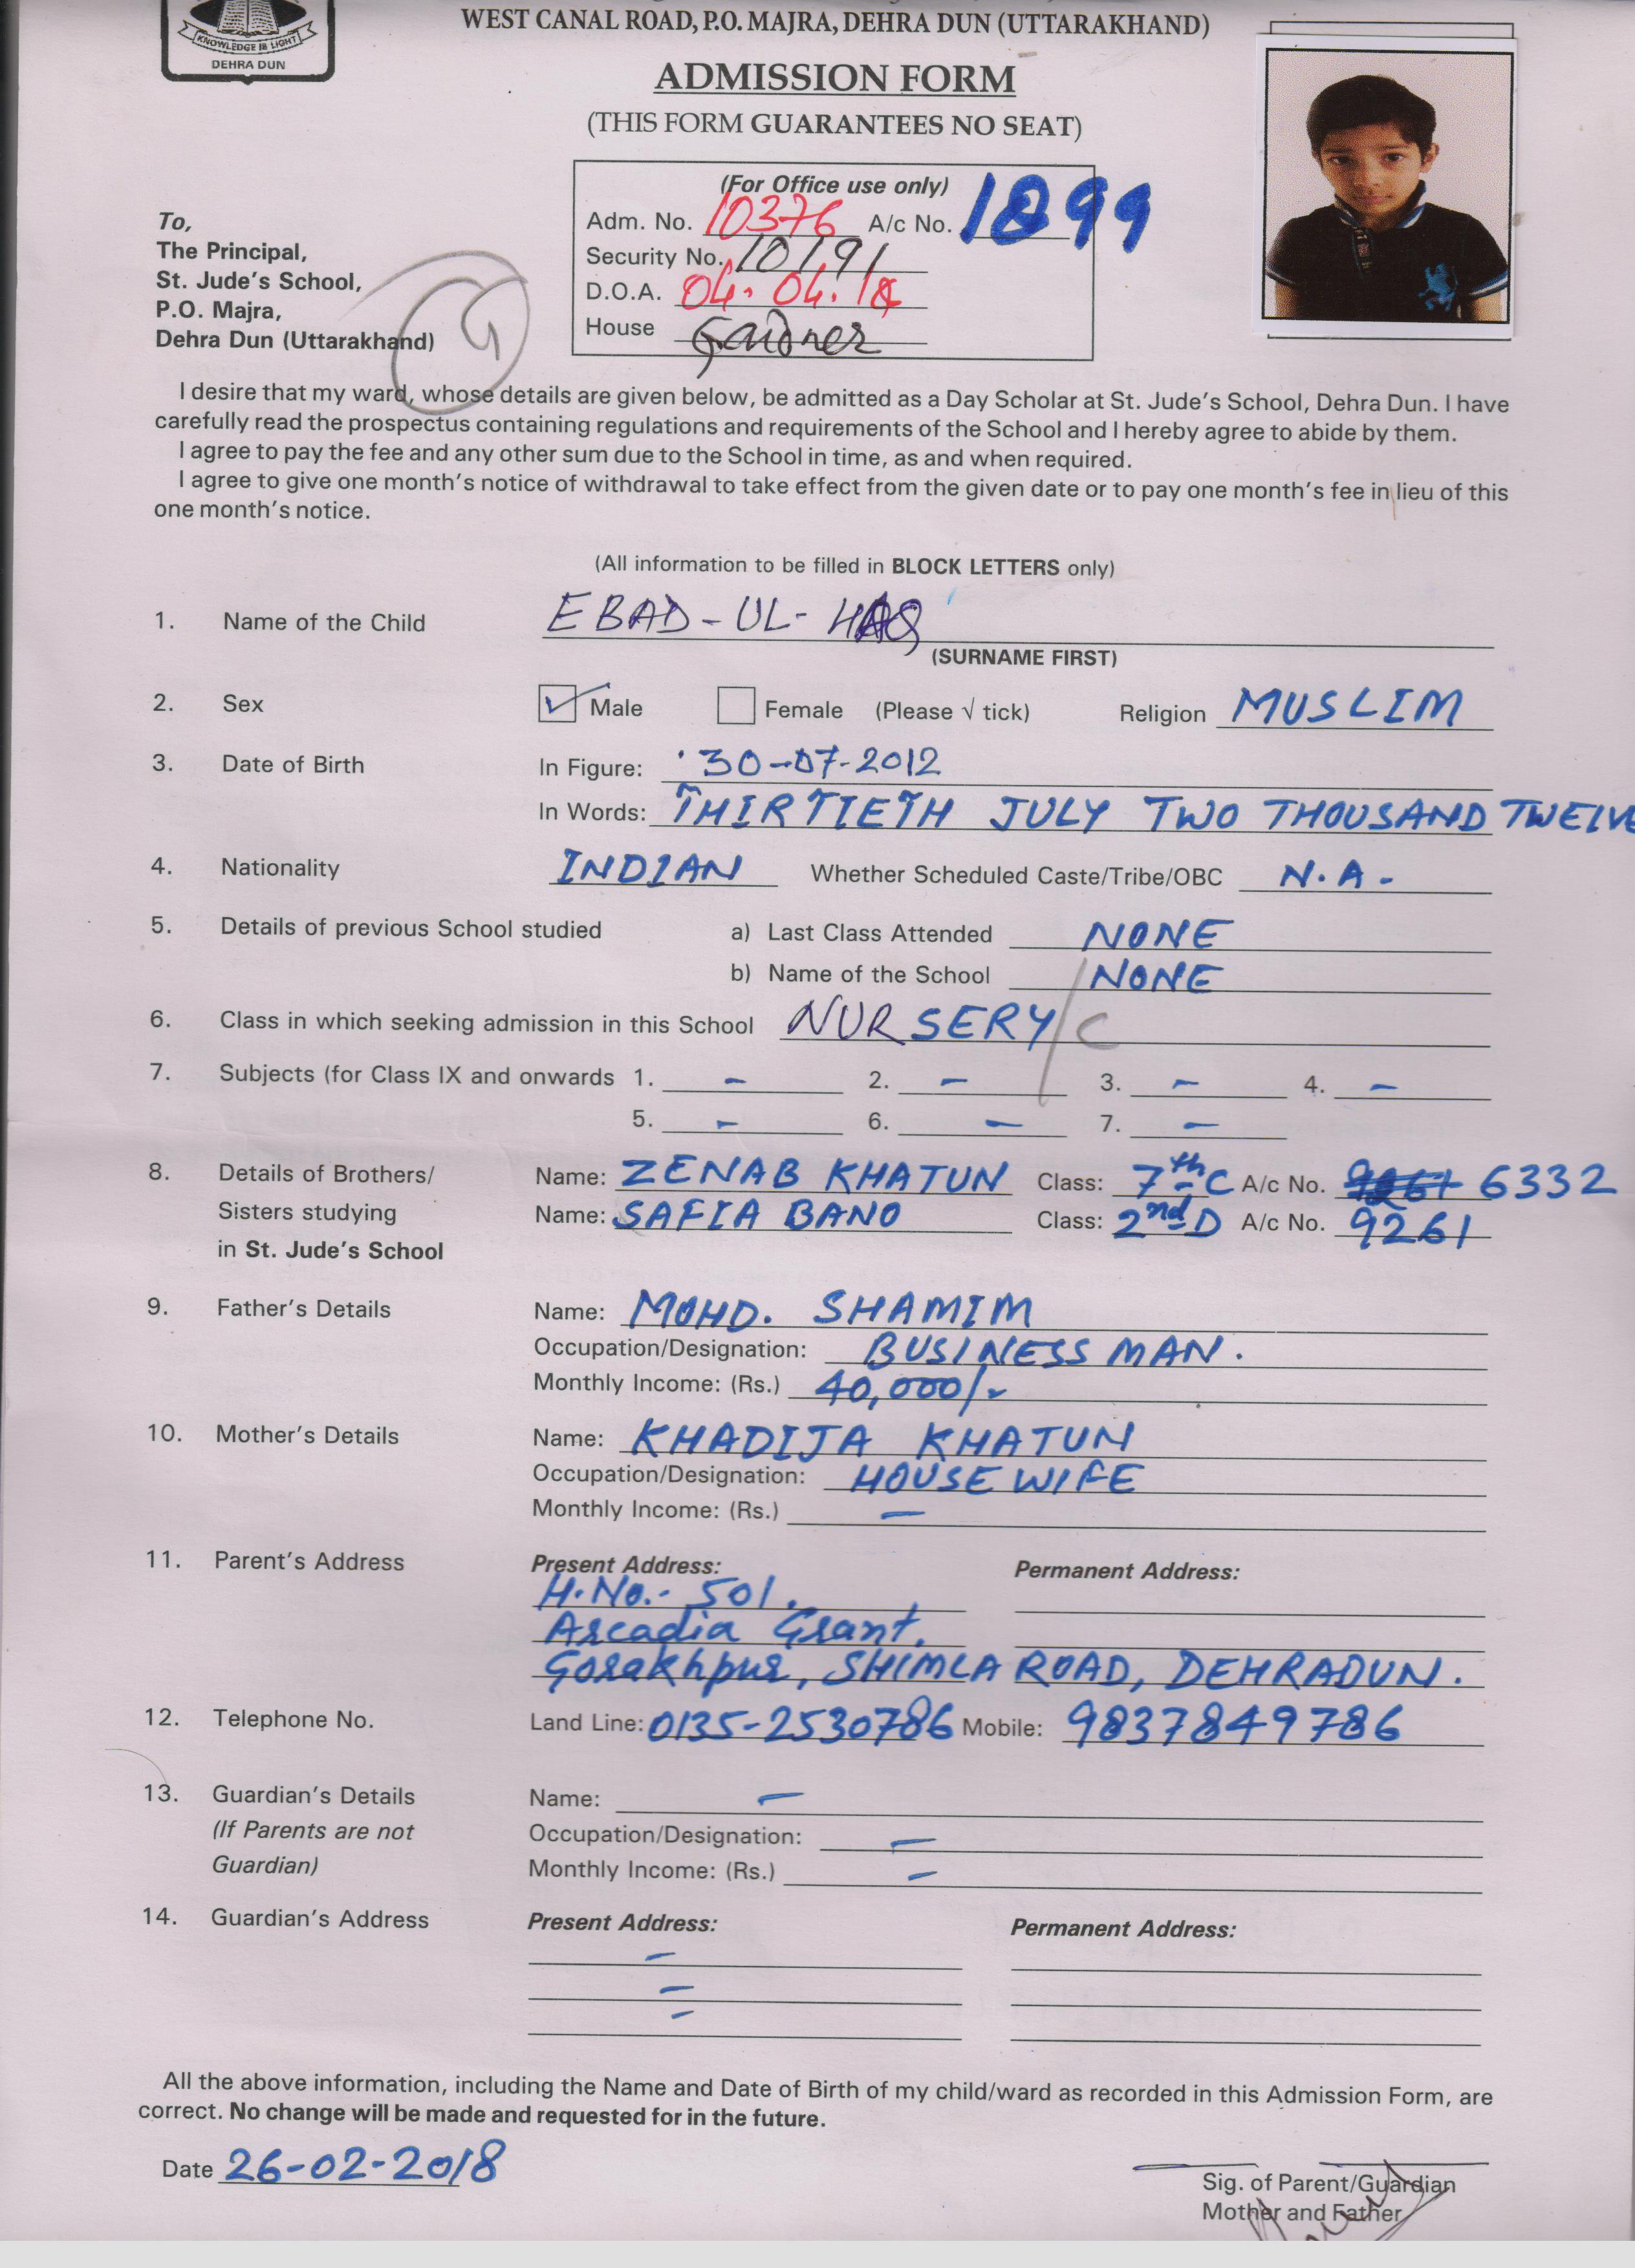 KNOWLEDGE IS LIGHT
DEHRA DUN
WEST CANAL ROAD, P.O. MAJRA, DEHRA DUN (UTTARAKHAND)
ADMISSION FORM
(THIS FORM GUARANTEES NO SEAT)
(For Office use only)
Adm. No. 10376 A/c No. 1899
Security No. 10191
D.O.A. 04.04.18
House Gardner
To,
The Principal,
St. Jude's School,
P.O. Majra,
Dehra Dun (Uttarakhand)
G
I desire that my ward, whose details are given below, be admitted as a Day Scholar at St. Jude's School, Dehra Dun. I have
carefully read the prospectus containing regulations and requirements of the School and I hereby agree to abide by them.
I agree to pay the fee and any other sum due to the School in time, as and when required.
I agree to give one month's notice of withdrawal to take effect from the given date or to pay one month's fee in lieu of this
one month's notice.
(All information to be filled in BLOCK LETTERS only)
1. Name of the Child EBAD-UL-HAQ
(SURNAME FIRST)
2. Sex Male Female (Please √ tick) Religion MUSLIM
3. Date of Birth In Figure: 30-07-2012
In Words: THIRTIETH JULY TWO THOUSAND TWELVE
4. Nationality INDIAN Whether Scheduled Caste/Tribe/OBC N.A-
5. Details of previous School studied a) Last Class Attended NONE
b) Name of the School NONE
6. Class in which seeking admission in this School NURSERY/C
7. Subjects (for Class IX and onwards 1. - 2. - 3. - 4. -
5. - 6. - 7. -
8. Details of Brothers/ Name: ZENAB KHATUN Class: 7th C A/c No. 6332
Sisters studying Name: SAFIA BANO Class: 2nd D A/c No. 9261
in St. Jude's School
9. Father's Details Name: MOHD. SHAMIM
Occupation/Designation: BUSINESS MAN.
Monthly Income: (Rs.) 40,000/-
10. Mother's Details Name: KHADIJA KHATUN
Occupation/Designation: HOUSE WIFE
Monthly Income: (Rs.) -
11. Parent's Address Present Address: Permanent Address:
H.No.- 501,
Arcadia Grant,
Gorakhpur, SHIMLA ROAD, DEHRADUN.
12. Telephone No. Land Line: 0135-2530786 Mobile: 9837849786
13. Guardian's Details Name: -
(If Parents are not Occupation/Designation: -
Guardian) Monthly Income: (Rs.) -
14. Guardian's Address Present Address: Permanent Address:
-
-
-
All the above information, including the Name and Date of Birth of my child/ward as recorded in this Admission Form, are
correct. No change will be made and requested for in the future.
Date 26-02-2018
Sig. of Parent/Guardian
Mother and Father